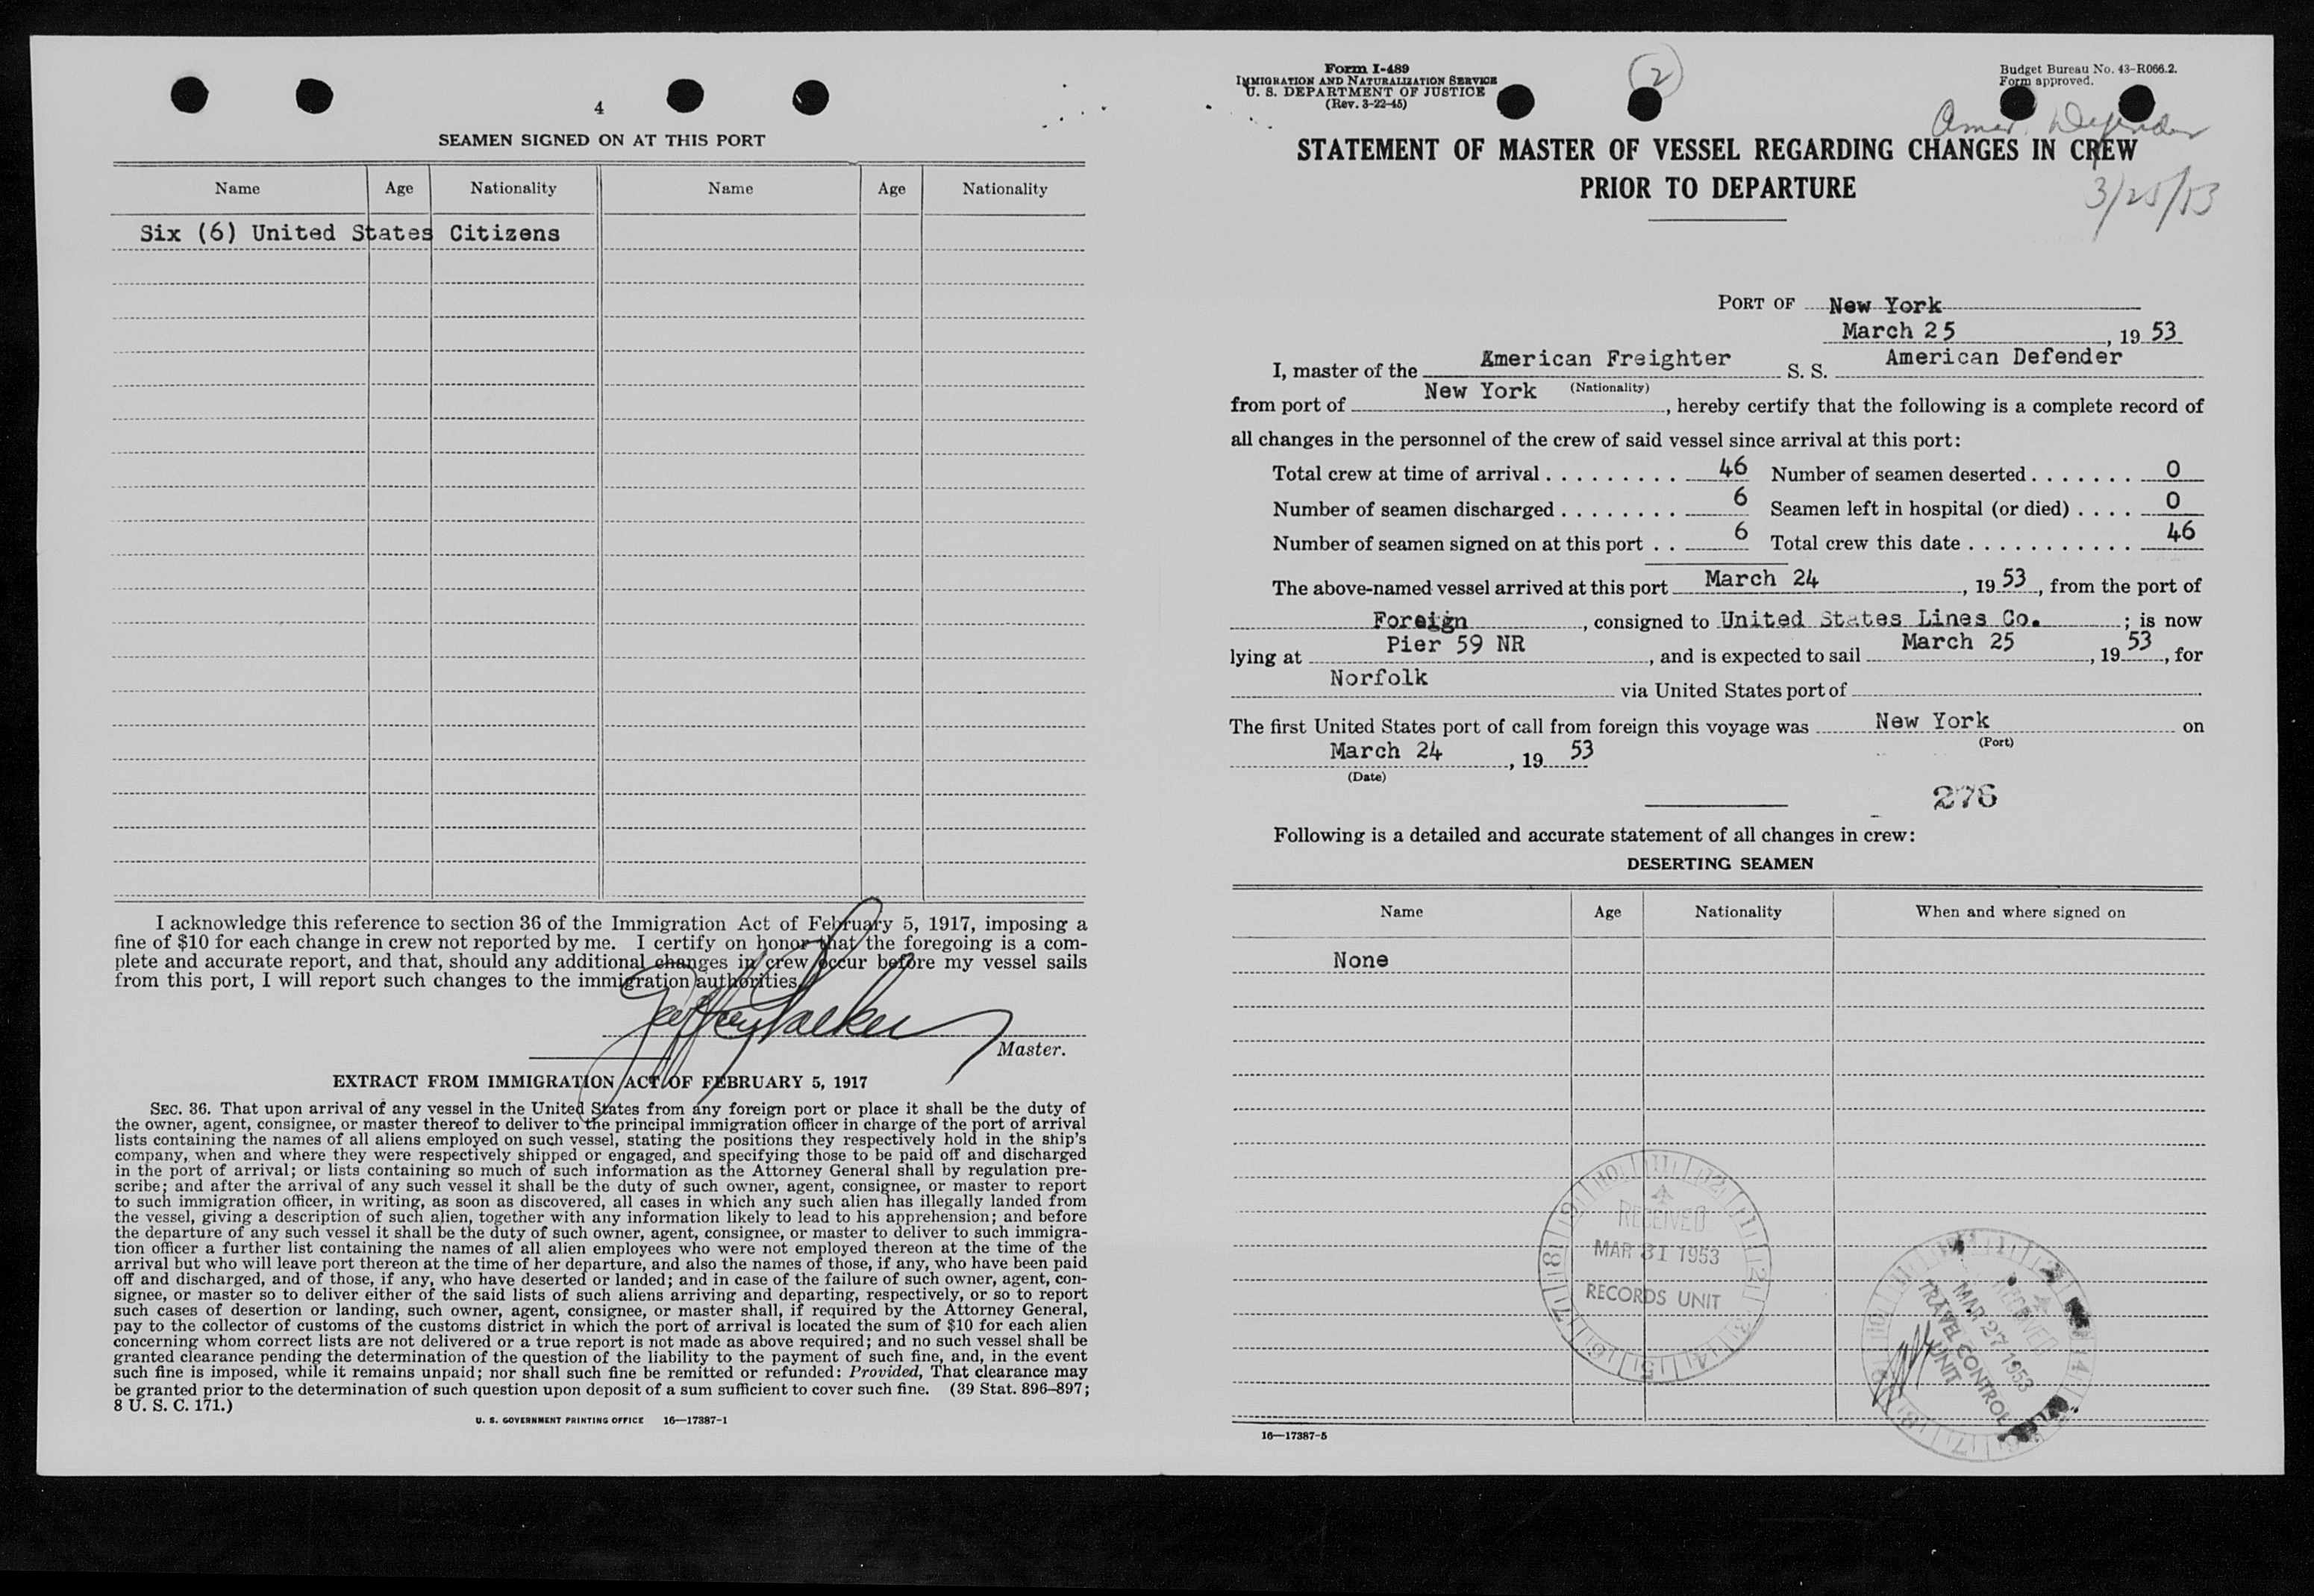 4
SEAMEN SIGNED ON AT THIS PORT
Name Age Nationality Name Age Nationality
Six (6) United States Citizens
I acknowledge this reference to section 36 of the Immigration Act of February 5, 1917, imposing a
fine of $10 for each change in crew not reported by me. I certify on honor that the foregoing is a com-
plete and accurate report, and that, should any additional changes in crew occur before my vessel sails
from this port, I will report such changes to the immigration authorities.
Master.
EXTRACT FROM IMMIGRATION ACT OF FEBRUARY 5, 1917
SEC. 36. That upon arrival of any vessel in the United States from any foreign port or place it shall be the duty of
the owner, agent, consignee, or master thereof to deliver to the principal immigration officer in charge of the port of arrival
lists containing the names of all aliens employed on such vessel, stating the positions they respectively hold in the ship's
company, when and where they were respectively shipped or engaged, and specifying those to be paid off and discharged
in the port of arrival; or lists containing so much of such information as the Attorney General shall by regulation pre-
scribe; and after the arrival of any such vessel it shall be the duty of such owner, agent, consignee, or master to report
to such immigration officer, in writing, as soon as discovered, all cases in which any such alien has illegally landed from
the vessel, giving a description of such alien, together with any information likely to lead to his apprehension; and before
the departure of any such vessel it shall be the duty of such owner, agent, consignee, or master to deliver to such immigra-
tion officer a further list containing the names of all alien employees who were not employed thereon at the time of the
arrival but who will leave port thereon at the time of her departure, and also the names of those, if any, who have been paid
off and discharged, and of those, if any, who have deserted or landed; and in case of the failure of such owner, agent, con-
signee, or master so to deliver either of the said lists of such aliens arriving and departing, respectively, or so to report
such cases of desertion or landing, such owner, agent, consignee, or master shall, if required by the Attorney General,
pay to the collector of customs of the customs district in which the port of arrival is located the sum of $10 for each alien
concerning whom correct lists are not delivered or a true report is not made as above required; and no such vessel shall be
granted clearance pending the determination of the question of the liability to the payment of such fine, and, in the event
such fine is imposed, while it remains unpaid; nor shall such fine be remitted or refunded: Provided, That clearance may
be granted prior to the determination of such question upon deposit of a sum sufficient to cover such fine. (39 Stat. 896–897;
8 U. S. C. 171.)
U. S. GOVERNMENT PRINTING OFFICE 16—17387-1
Form I-489
IMMIGRATION AND NATURALIZATION SERVICE
U. S. DEPARTMENT OF JUSTICE
(Rev. 3-22-45)
2
Budget Bureau No. 43-R066.2.
Form approved.
Amer. Defender
STATEMENT OF MASTER OF VESSEL REGARDING CHANGES IN CREW
PRIOR TO DEPARTURE
3/25/53
PORT OF New York
March 25, 19 53
I, master of the American Freighter S. S. American Defender
(Nationality)
from port of New York, hereby certify that the following is a complete record of
all changes in the personnel of the crew of said vessel since arrival at this port:
Total crew at time of arrival 46 Number of seamen deserted 0
Number of seamen discharged 6 Seamen left in hospital (or died) 0
Number of seamen signed on at this port 6 Total crew this date 46
The above-named vessel arrived at this port March 24, 19 53, from the port of
Foreign, consigned to United States Lines Co.; is now
lying at Pier 59 NR, and is expected to sail March 25, 19 53, for
Norfolk via United States port of
The first United States port of call from foreign this voyage was New York on
(Port)
March 24, 19 53
(Date)
276
Following is a detailed and accurate statement of all changes in crew:
DESERTING SEAMEN
Name Age Nationality When and where signed on
None
RECEIVED
MAR 31 1953
RECORDS UNIT
RECEIVED
MAR 27 1953
TRAVEL CONTROL
UNIT
16—17387-5